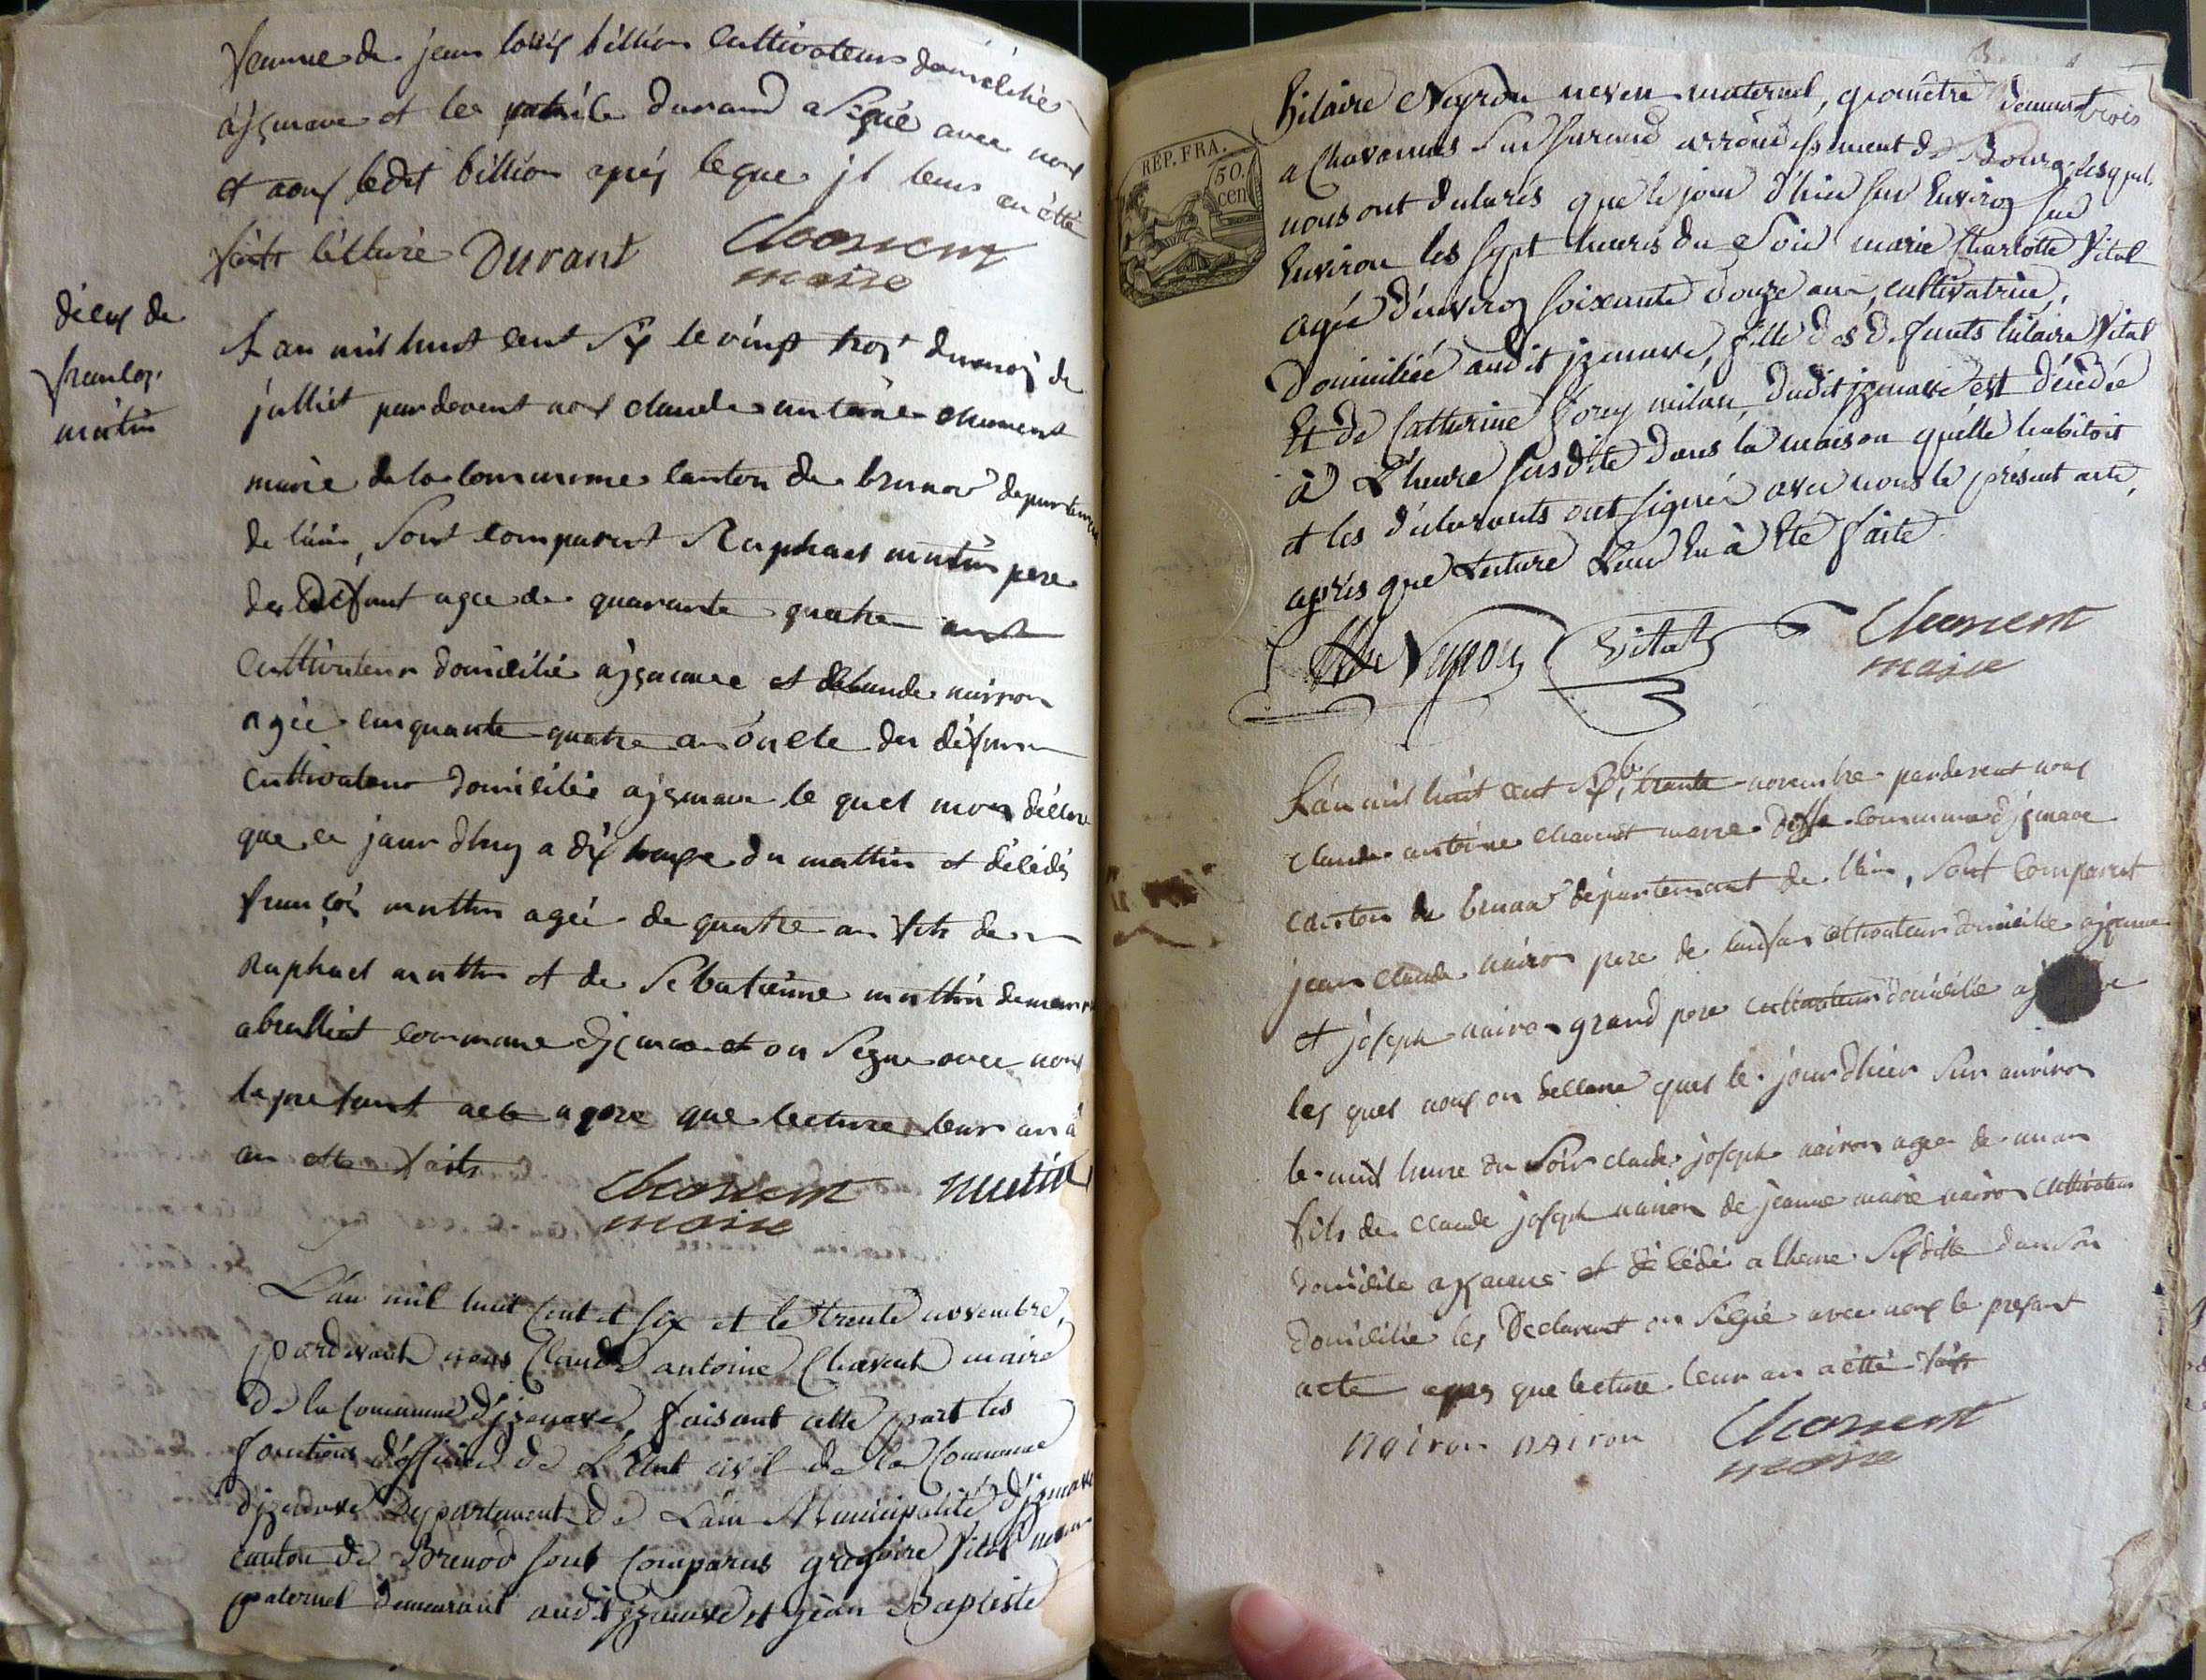 femme de jean louis billion cultivateur domicilié
a jzenave et les durand a signé avec nous
et nous ledit billion apres leque jl leur an etté
faite lecture Durant Chavent
maire
déces de
francoi
mutin
L an mil huit cent six le vingt troi du moi de
julliet pardevent nous claude antoine chavent
maire de la commune canton de brenod departement
de lain, sont comparut Raphael mutin pere
du défunt agee de quarante quatre ans
cultivateur domicilié a jzenave et claude nairon
agée cinquante quatre an oncle du défunt
cultivateur domicilié a jzenave le quel nous déclare
que ce jour dhuy a dix heure du mattin et décédés
francois muttin agée de quatre an fils de
Raphael muttin et de Sebatienne muttin demeurant
commune djzenave et on signe avec nous
le presant acte apre que lecture leur an à
an ette faite Chavent mutin
maire
L'an mil huit cent et six et le trente novembre,
pardevant nous Claude antoine Chavent maire
De la Commune d'jzenave, faisant cette part les
fonctions d'officier de L'Etat civil de la Commune
djzenave Departement de Lain Municipalité djzenave
canton de Brenod sont comparus gregoire Vital neveu
paternel demeurant audit jzenave et jean Baptiste
REP. FRA.
50.
cen
hilaire Neyron neveu maternel, géomètre demeurant
a Chavannes sur Surand arrondissement de Bourg, lesquels
nous ont declarés que le jour d'hier sur Environ sur
Environ les sept heures du Soir marie Charlotte Vital
agée d'environ soixante douze ans, cultivatrice,
Domiciliée audit jzenave, fille des défunts hilaire Vital
Et de Catherine dudit jzenave est décédée
à L'heure susdite dans la maison qu'elle habitoit
et les déclarants ont signé avec nous le présent acte,
après que Lecture Leur En à Eté faite.
Neyron Vital Chavent
maire
L'an mil huit cent six, trente novembre pardevent nous
claude antoine chavent maire disse commune djzenave
canton de brenod departement de lain, sont comparut
jean claude nairon pere de lanfan cultivateur domicilie a jzenave
et joseph nairon grand pere cultivateur domicilie a
les quel nous on declare quel le jour dhier sur anviron
le huit heure du soir claude joseph nairon agee de un an
fils de claude joseph nairon de jeanne marie nairon cultivateur
domicilie a jzenave et décédé a lheure susditte dan son
domicilie les Declarant on signé avec nous le presant
acte apres que lecture leur an a etté faite
nairon nairon Chavent
maire